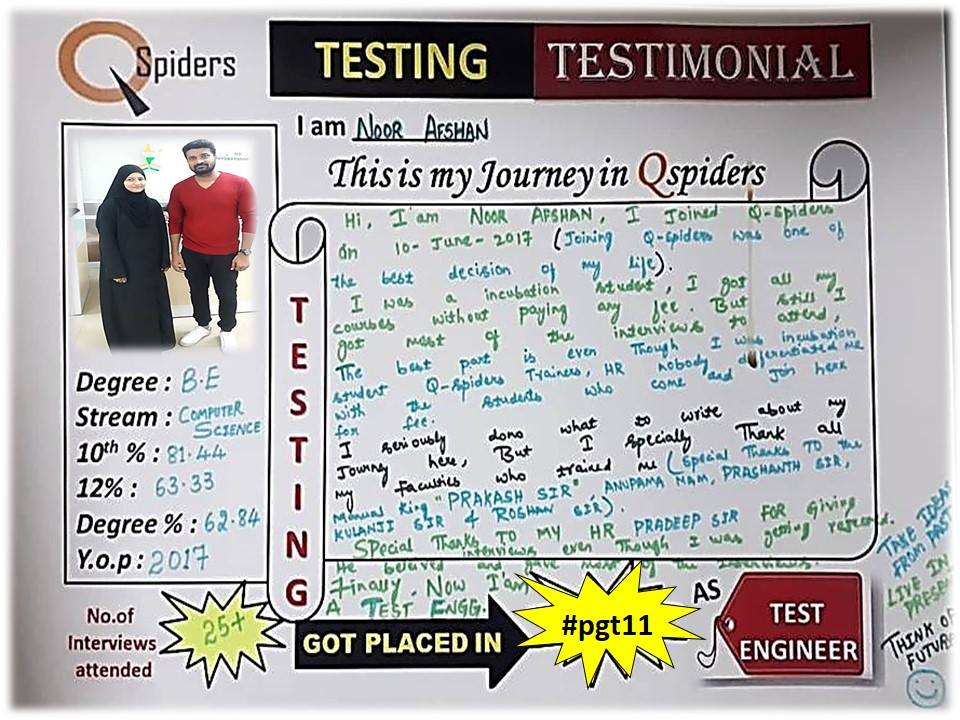 QSpiders
TESTING TESTIMONIAL
I am NOOR AFSHAN
This is my Journey in Qspiders
TESTING
Hi, I am NOOR AFSHAN, I Joined Q-Spiders
on 10-June-2017 (Joining Q-spiders was one of
the best decision of my life).
I was a incubation student, I got all my
courses without paying any fee. But still I
got most of the interviews to attend,
The best part is even Though I was incubation
student Q-Spiders Trainers, HR nobody differentiated me
with the students who come and join here
for fee.
I seriously dono what to write about my
Journy here, But I specially Thank all
my faculties who trained me (Special Thanks TO the
Manual King "PRAKASH SIR" ANUPAMA MAM, PRASHANTH SIR,
KULANJI SIR & ROSHAN SIR).
SPecial Thanks TO MY HR PRADEEP SIR FOR Giving
interviews even Though I was getting rejected.
He and gave most of the interviews.
Finally. Now I'am
A TEST ENGG.
Degree : B.E
Stream : COMPUTER
SCIENCE
10th % : 81.44
12% : 63.33
Degree % : 62.84
Y.o.p : 2017
No.of
Interviews
attended
25+
GOT PLACED IN
#pgt11
AS
TEST
ENGINEER
TAKE IDEAS
FROM PAST
LIVE IN
PRESEN
THINK OF
FUTURE